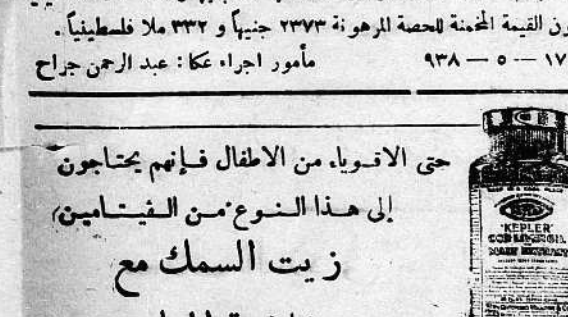 ون القيمة المخمنة للحصة المرهونة ٢٣٧٣ جنيهاً و ٣٣٢ ملا فلسطينياً .
١٧ — ٥ — ٩٣٨ مأمور اجراء عكا : عبد الرحمن جراح
حتى الاقوياء من الاطفال فإنهم يحتاجون
إلى هذا النوع من الفيتامين
زيت السمك مع
'KEPLER'
COD LIVER OIL
MALT EXTRACT